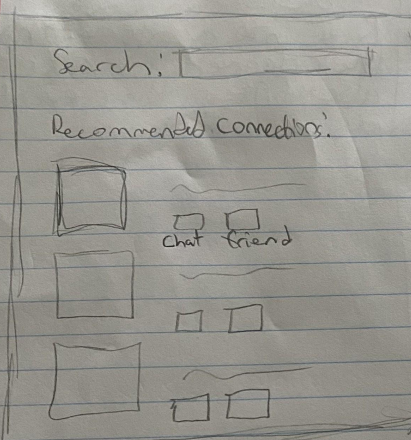 Search:
Recommended connections:
Chat friend